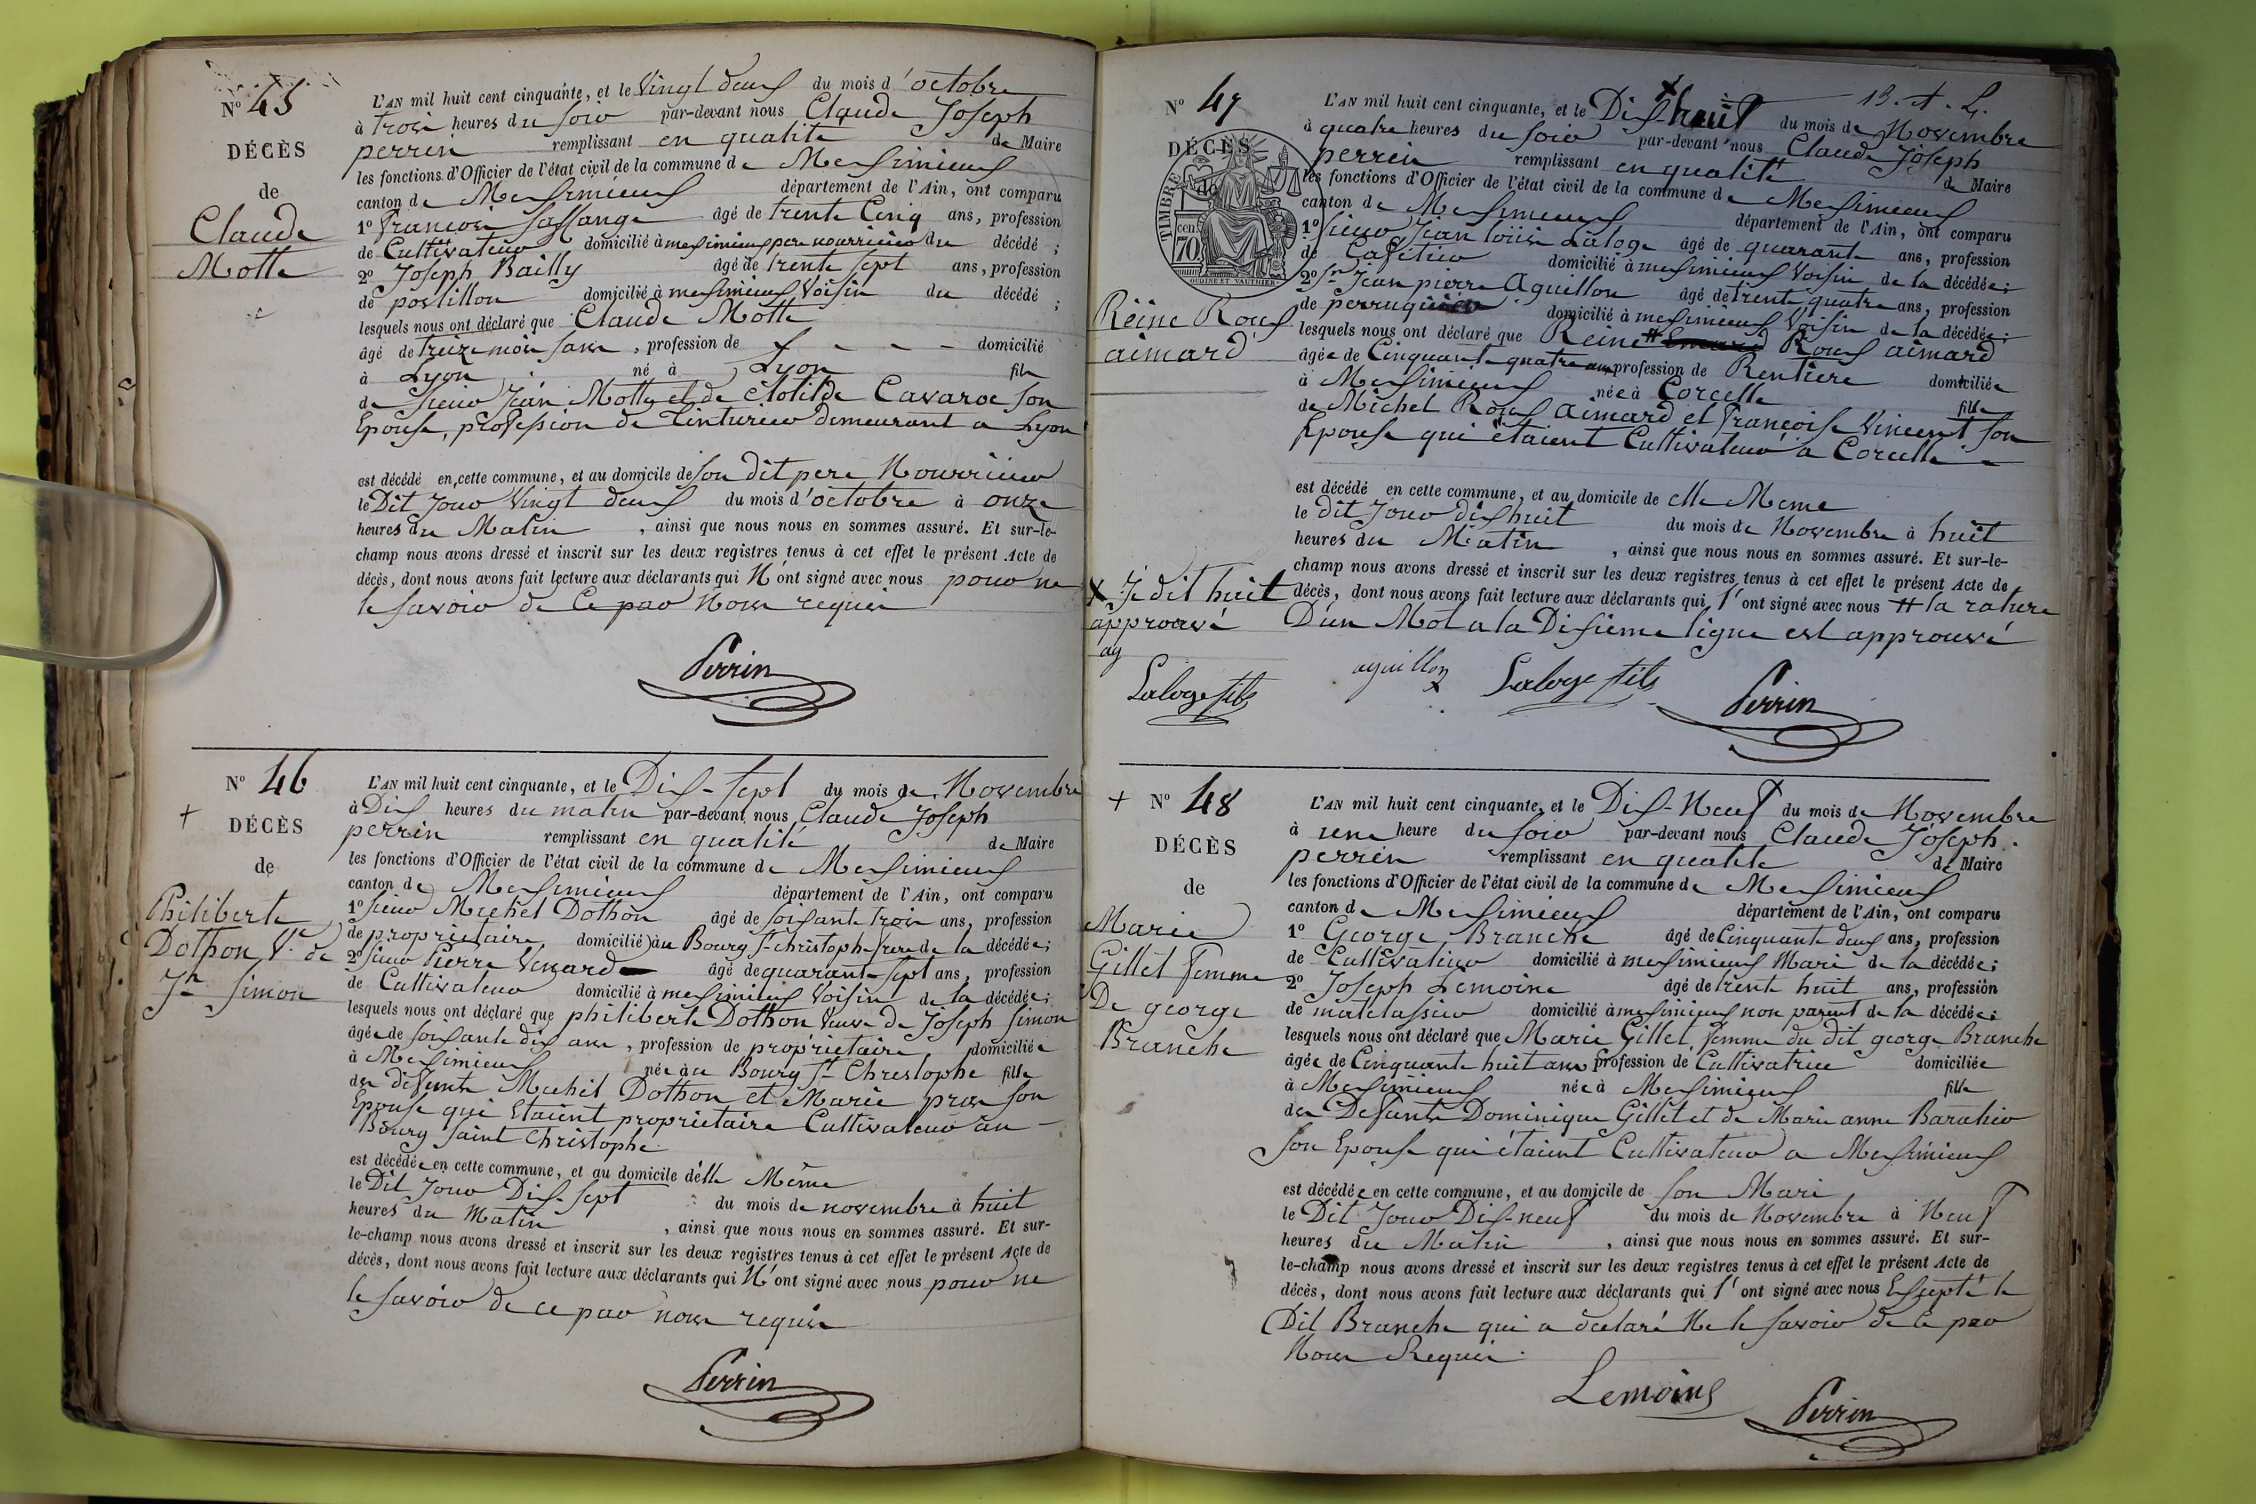 N° 45
DÉCÈS
de
Claude
Motte
L'AN mil huit cent cinquante, et le Vingt deux du mois d'octobre
à trois heures du soir par-devant nous Claude Joseph
perrin remplissant en qualité de Maire
les fonctions d'Officier de l'état civil de la commune de Meximieux
canton de Meximieux département de l'Ain, ont comparu
1° francois age de trente Cinq ans, profession
de Cultivateur domicilié à meximieux pere nourricier du décédé ;
2° Joseph Bailly âgé de trente sept ans, profession
de postillon domicilié à meximieux Voisin du décédé ;
lesquels nous ont déclaré que Claude Motte
âgé de treize mois sans , profession de domicilié
à Lyon né à Lyon fils
de sieur Jean Motte et de Clotilde Cavaroc son
Epouse, profession de Tinturier demeurant a Lyon
est décédé en cette commune, et au domicile de son dit pere Nourricier
le Dit Jour Vingt deux du mois d'octobre à onze
heures du Matin , ainsi que nous nous en sommes assuré. Et sur-le-
champ nous avons dressé et inscrit sur les deux registres tenus à cet effet le présent Acte de
décès, dont nous avons fait lecture aux déclarants qui N'ont signé avec nous pour ne
le savoir de Ce par Nous requis
Perrin
N° 46
+
DÉCÈS
de
Philiberte
Dothon Ve. de
Jh simon
L'AN mil huit cent cinquante, et le Dix-sept du mois de Novembre
à Dix heures du matin par-devant nous Claude Joseph
perrin remplissant en qualité de Maire
les fonctions d'Officier de l'état civil de la commune de Meximieux
canton de Meximieux département de l'Ain, ont comparu
1° sieur Michel Dothon âgé de soixante trois ans, profession
de propriétaire domicilié au Bourg St christophe frere de la décédée;
2° sieur Pierre Venard âgé de quarante sept ans, profession
de Cultivateur domicilié à meximieux Voisin de la décédée;
lesquels nous ont déclaré que philiberte Dothon Veuve de Joseph simon
âgée de soixante dix ans , profession de propriétaire domiciliée
à Meximieux née au Bourg St Christophe fille
de defunts Michel Dothon et Marie pras son
Epouse qui Etaient propriétaire Cultivateur au
Bourg Saint Christophe
est décédée en cette commune, et au domicile d'elle Même
le Dit Jour Dix-sept du mois de novembre à huit
heures du Matin , ainsi que nous nous en sommes assuré. Et sur-
le-champ nous avons dressé et inscrit sur les deux registres tenus à cet effet le présent Acte de
décès, dont nous avons fait lecture aux déclarants qui N'ont signé avec nous pour ne
le savoir de ce par nous requis
Perrin
N° 47
DÉCÈS
de
TIMBRE
cen. 70
OUDINE ET VAUTHIER
Reine Roux
aimard
13. A. L.
L'AN mil huit cent cinquante, et le Dix huit du mois de Novembre
à quatre heures du soir par-devant nous Claude Joseph
perrin remplissant en qualité de Maire
les fonctions d'Officier de l'état civil de la commune de Meximieux
canton de Meximieux département de l'Ain, ont comparu
1° sieur Jean loüis Laloge âgé de quarante ans, profession
de Cafetier domicilié à meximieux Voisin de la décédée;
2° Sr Jean pierre Aguillon âgé de trente quatre ans, profession
de perruquier domicilié à meximieux Voisin de la décédée;
lesquels nous ont déclaré que Reine # Roux aimard
âgée de Cinquante quatre ans profession de Rentiere domiciliée
à Meximieux née à Corcelle fille
de Michel Roux aimard et françoise Vincent son
Epouse qui étaient Cultivateur a Corcelle
est décédé en cette commune, et au domicile de elle Meme
le dit jour dix huit du mois de Novembre à huit
heures du Matin , ainsi que nous nous en sommes assuré. Et sur-le-
champ nous avons dressé et inscrit sur les deux registres tenus à cet effet le présent Acte de
décès, dont nous avons fait lecture aux déclarants qui l'ont signé avec nous # la rature
D'un Mot a la Dixieme ligne est approuvé
x dit huit
approuvé
ag
Laloge fils
aguillon
Laloge fils
Perrin
+ N° 48
DÉCÈS
de
Marie
Gillet femme
De george
Branche
L'AN mil huit cent cinquante, et le Dix-Neuf du mois de Novembre
à une heure du soir par-devant nous Claude Joseph
perrin remplissant en qualité de Maire
les fonctions d'Officier de l'état civil de la commune de Meximieux
canton de Meximieux département de l'Ain, ont comparu
1° George Branche âgé de Cinquante deux ans, profession
de Cultivateur domicilié à meximieux Mari de la décédée;
2° Joseph Lemoine âgé de trente huit ans, profession
de matelassier domicilié à meximieux non parent de la décédée;
lesquels nous ont déclaré que Marie Gillet, femme du dit george Branche
âgée de Cinquante huit ans profession de Cultivatrice domiciliée
à Meximieux née à Meximieux fille
de Defunts Dominique Gillet et de Marie anne
son Epouse qui étaient Cultivateur a Meximieux
est décédée en cette commune, et au domicile de son Mari
le Dit Jour Dix-neuf du mois de Novembre à Neuf
heures du Matin , ainsi que nous nous en sommes assuré. Et sur-
le-champ nous avons dressé et inscrit sur les deux registres tenus à cet effet le présent Acte de
décès, dont nous avons fait lecture aux déclarants qui l'ont signé avec nous Excepté le
Dit Branche qui a déclaré Ne le savoir de Ce par
Nous Requis.
Lemoine
Perrin